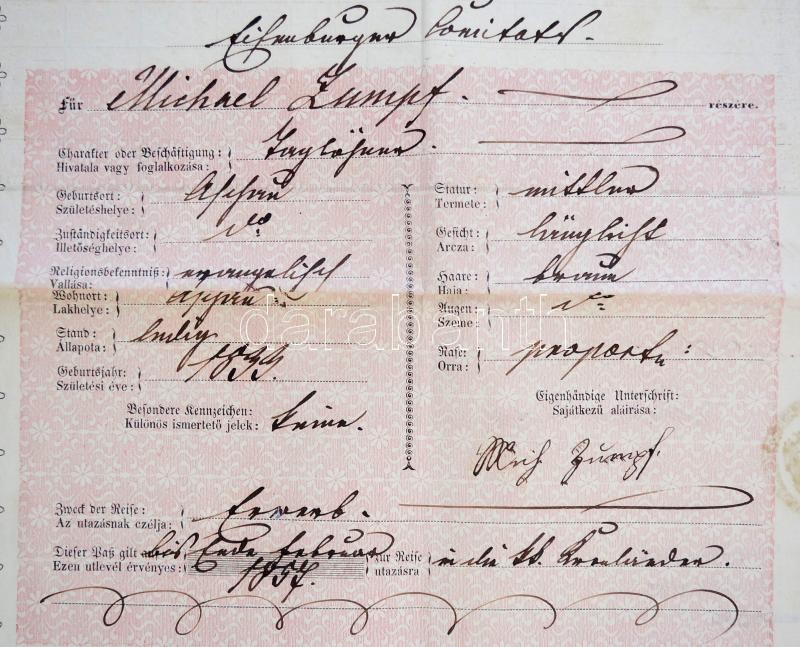 Eisenburger Comitats.
Für Michael Zumpf. részére.
Charakter oder Beschäftigung: Taglöhner.
Hivatala vagy foglalkozása:
Geburtsort: Aschau
Születéshelye:
Zuständigkeitsort: do
Illetőséghelye:
Religionsbekenntniß: evangelisch
Vallása:
Wohnort: Aschau
Lakhelye:
Stand: ledig
Állapota:
Geburtsjahr: 1833.
Születési éve:
Besondere Kennzeichen: keine.
Különös ismertető jelek:
Statur: mittler
Termete:
Gesicht: länglicht
Arcza:
Haare: braun
Haia:
Augen: do
Szeme:
Nase: proport:
Orra:
Eigenhändige Unterschrift:
Sajátkezű aláirása:
Mich. Zumpf.
darabanth
Zweck der Reise: Erwerb.
Az utazásnak czélja:
Dieser Paß gilt bis Ende Februar zur Reise in die kk. Kronländer.
Ezen utlevél érvényes: 1857. utazásra